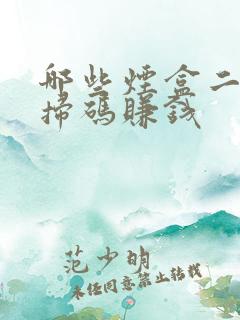 哪些煙盒二
掃碼賺錢
范少明
未经同意禁止转载